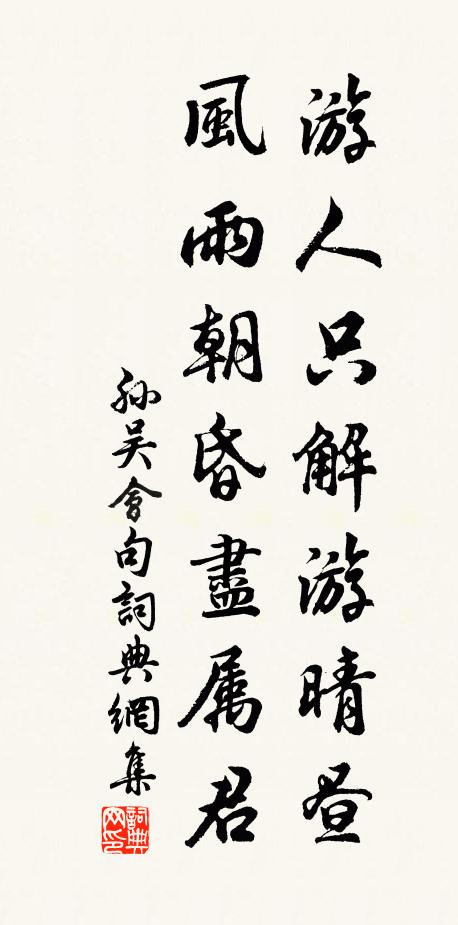 游人只解游晴昼
風雨朝昏盡属君
孙吴會句詞典網集
詞典
网印